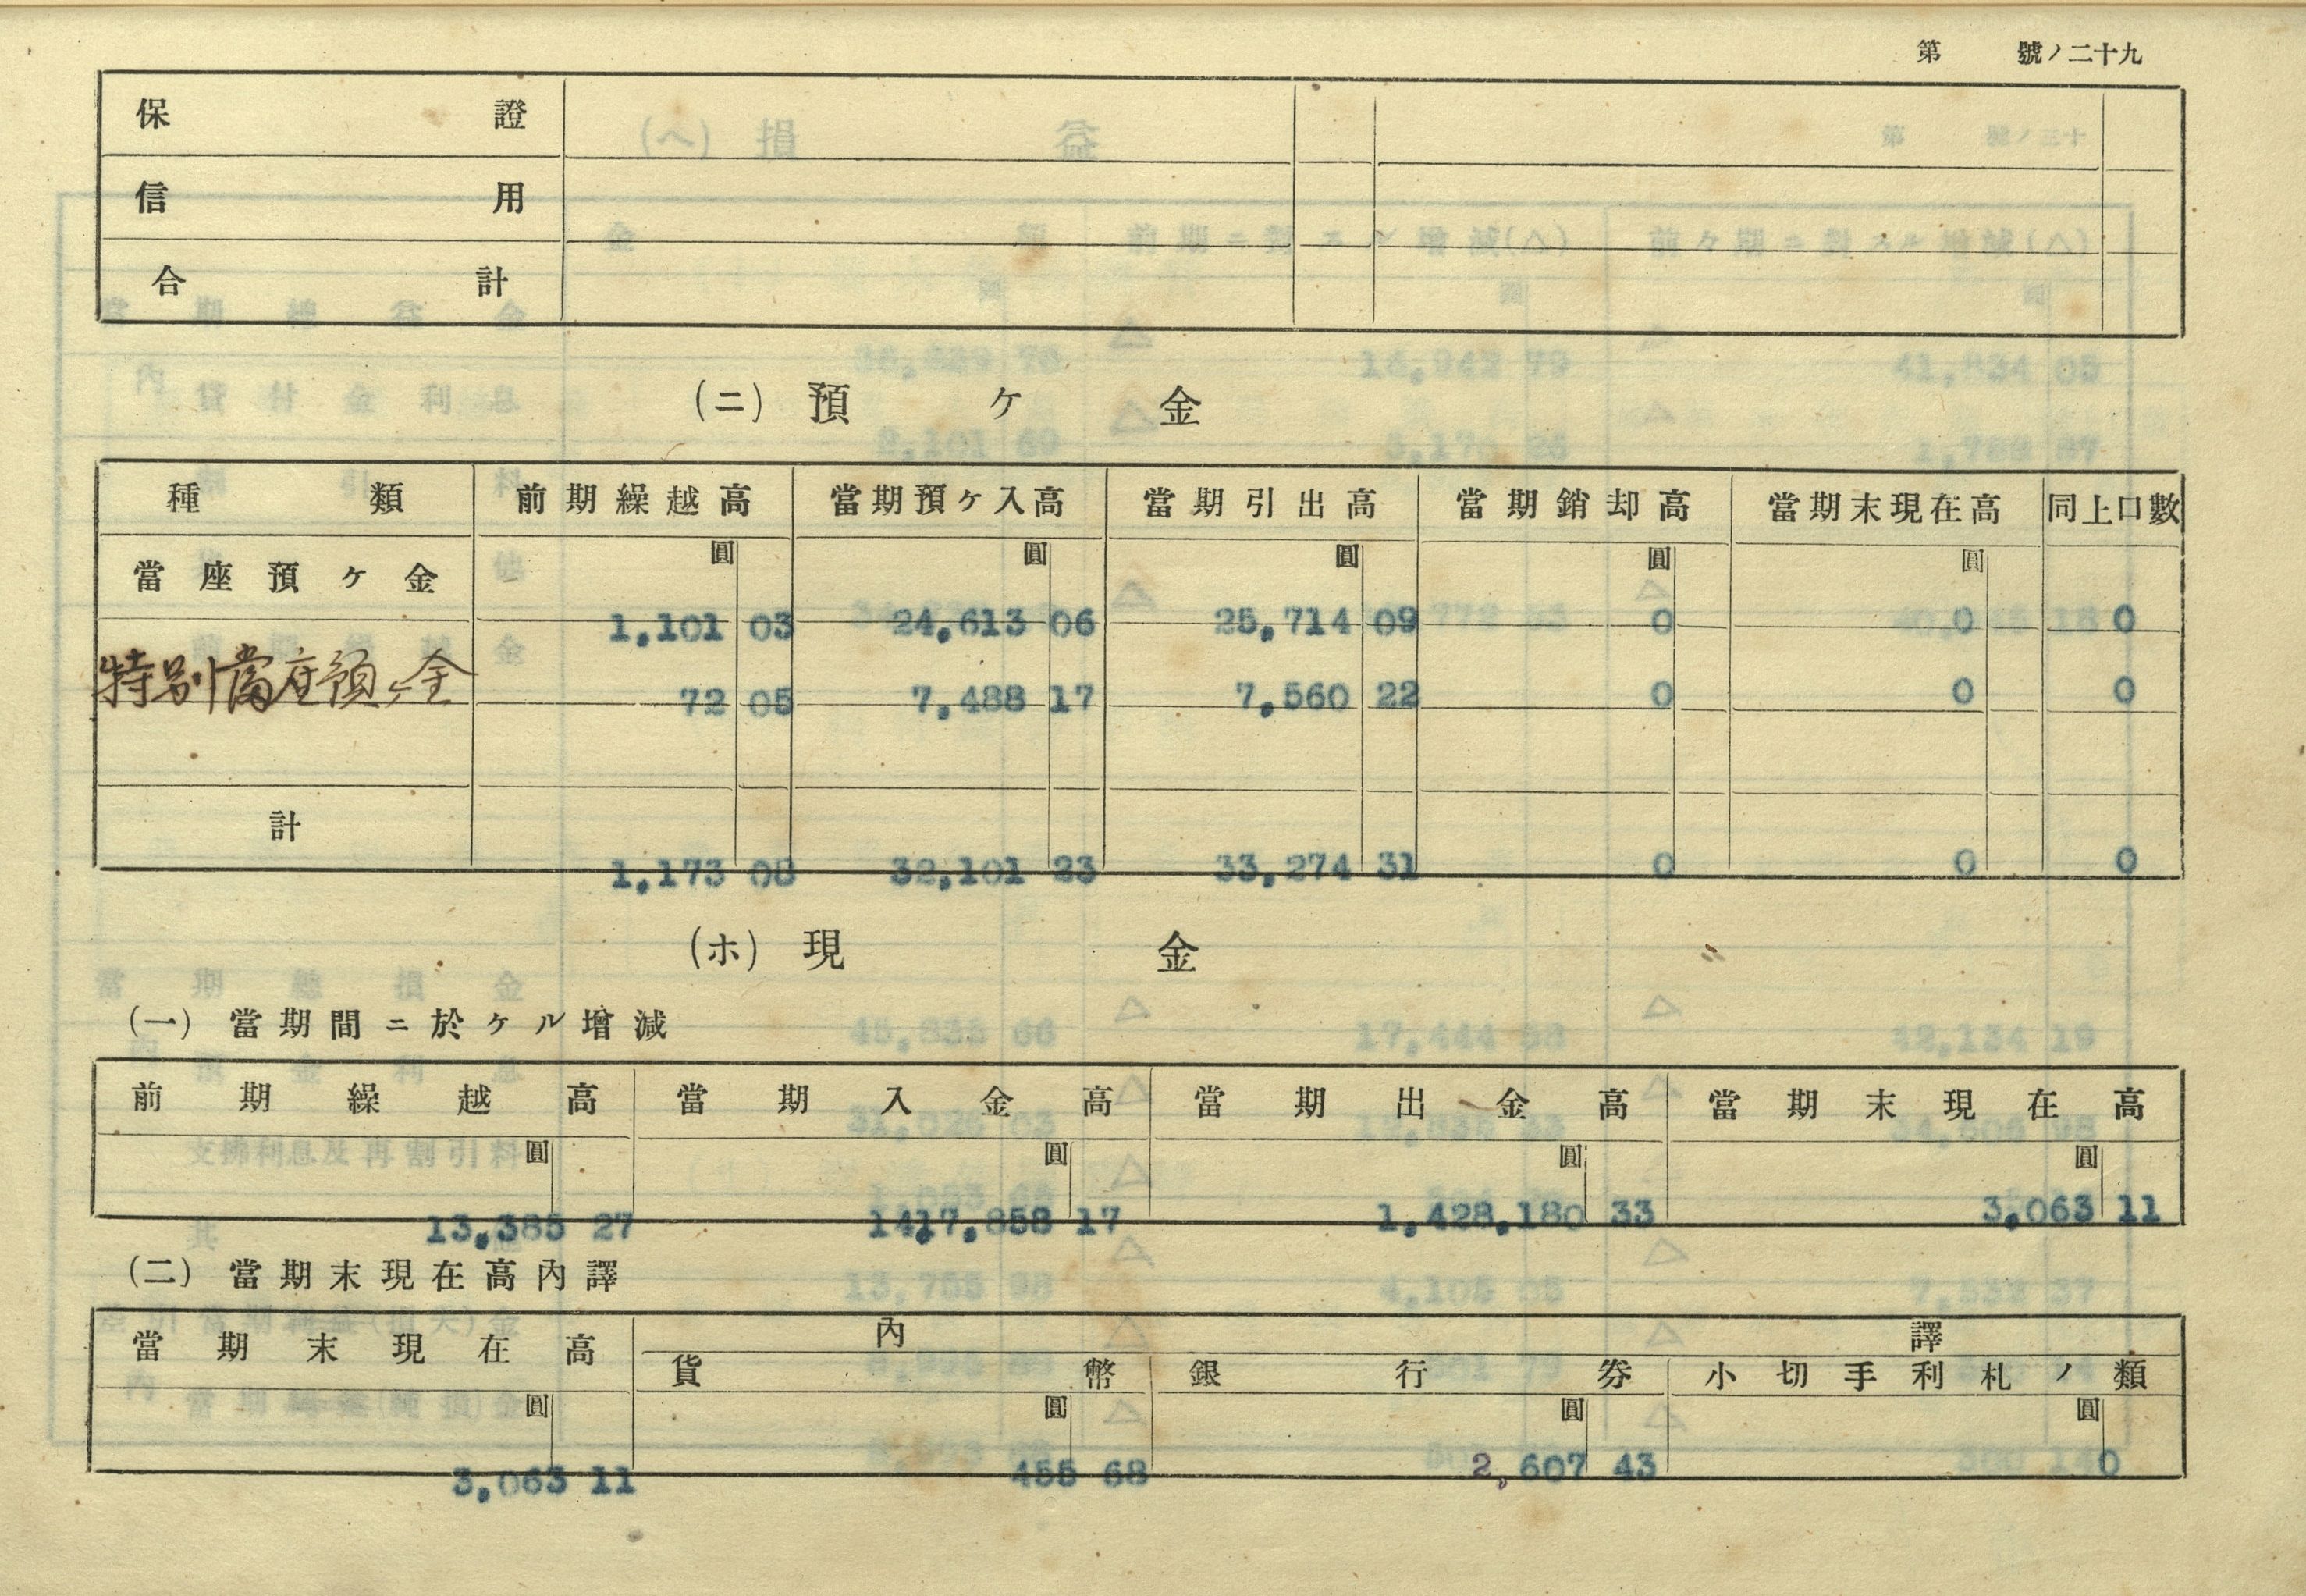 第　號ノ二十九
保證
信用
合計
(ニ) 預ケ金
種類 前期繰越高 當期預ケ入高 當期引出高 當期銷却高 當期末現在高 同上口數
圓 圓 圓 圓 圓
當座預ケ金 1,101 03 24,613 06 25,714 09 0 0 0
特別當座預ケ金 72 05 7,488 17 7,560 22 0 0 0
計 1,173 08 32,101 23 33,274 31 0 0 0
(ホ) 現金
(一) 當期間ニ於ケル增減
前期繰越高 當期入金高 當期出金高 當期末現在高
圓 圓 圓 圓
13,385 27 1417,858 17 1,428,180 33 3,063 11
(二) 當期末現在高內譯
當期末現在高 內譯
貨幣 銀行券 小切手利札ノ類
圓 圓 圓 圓
3,063 11 455 68 2,607 43 0